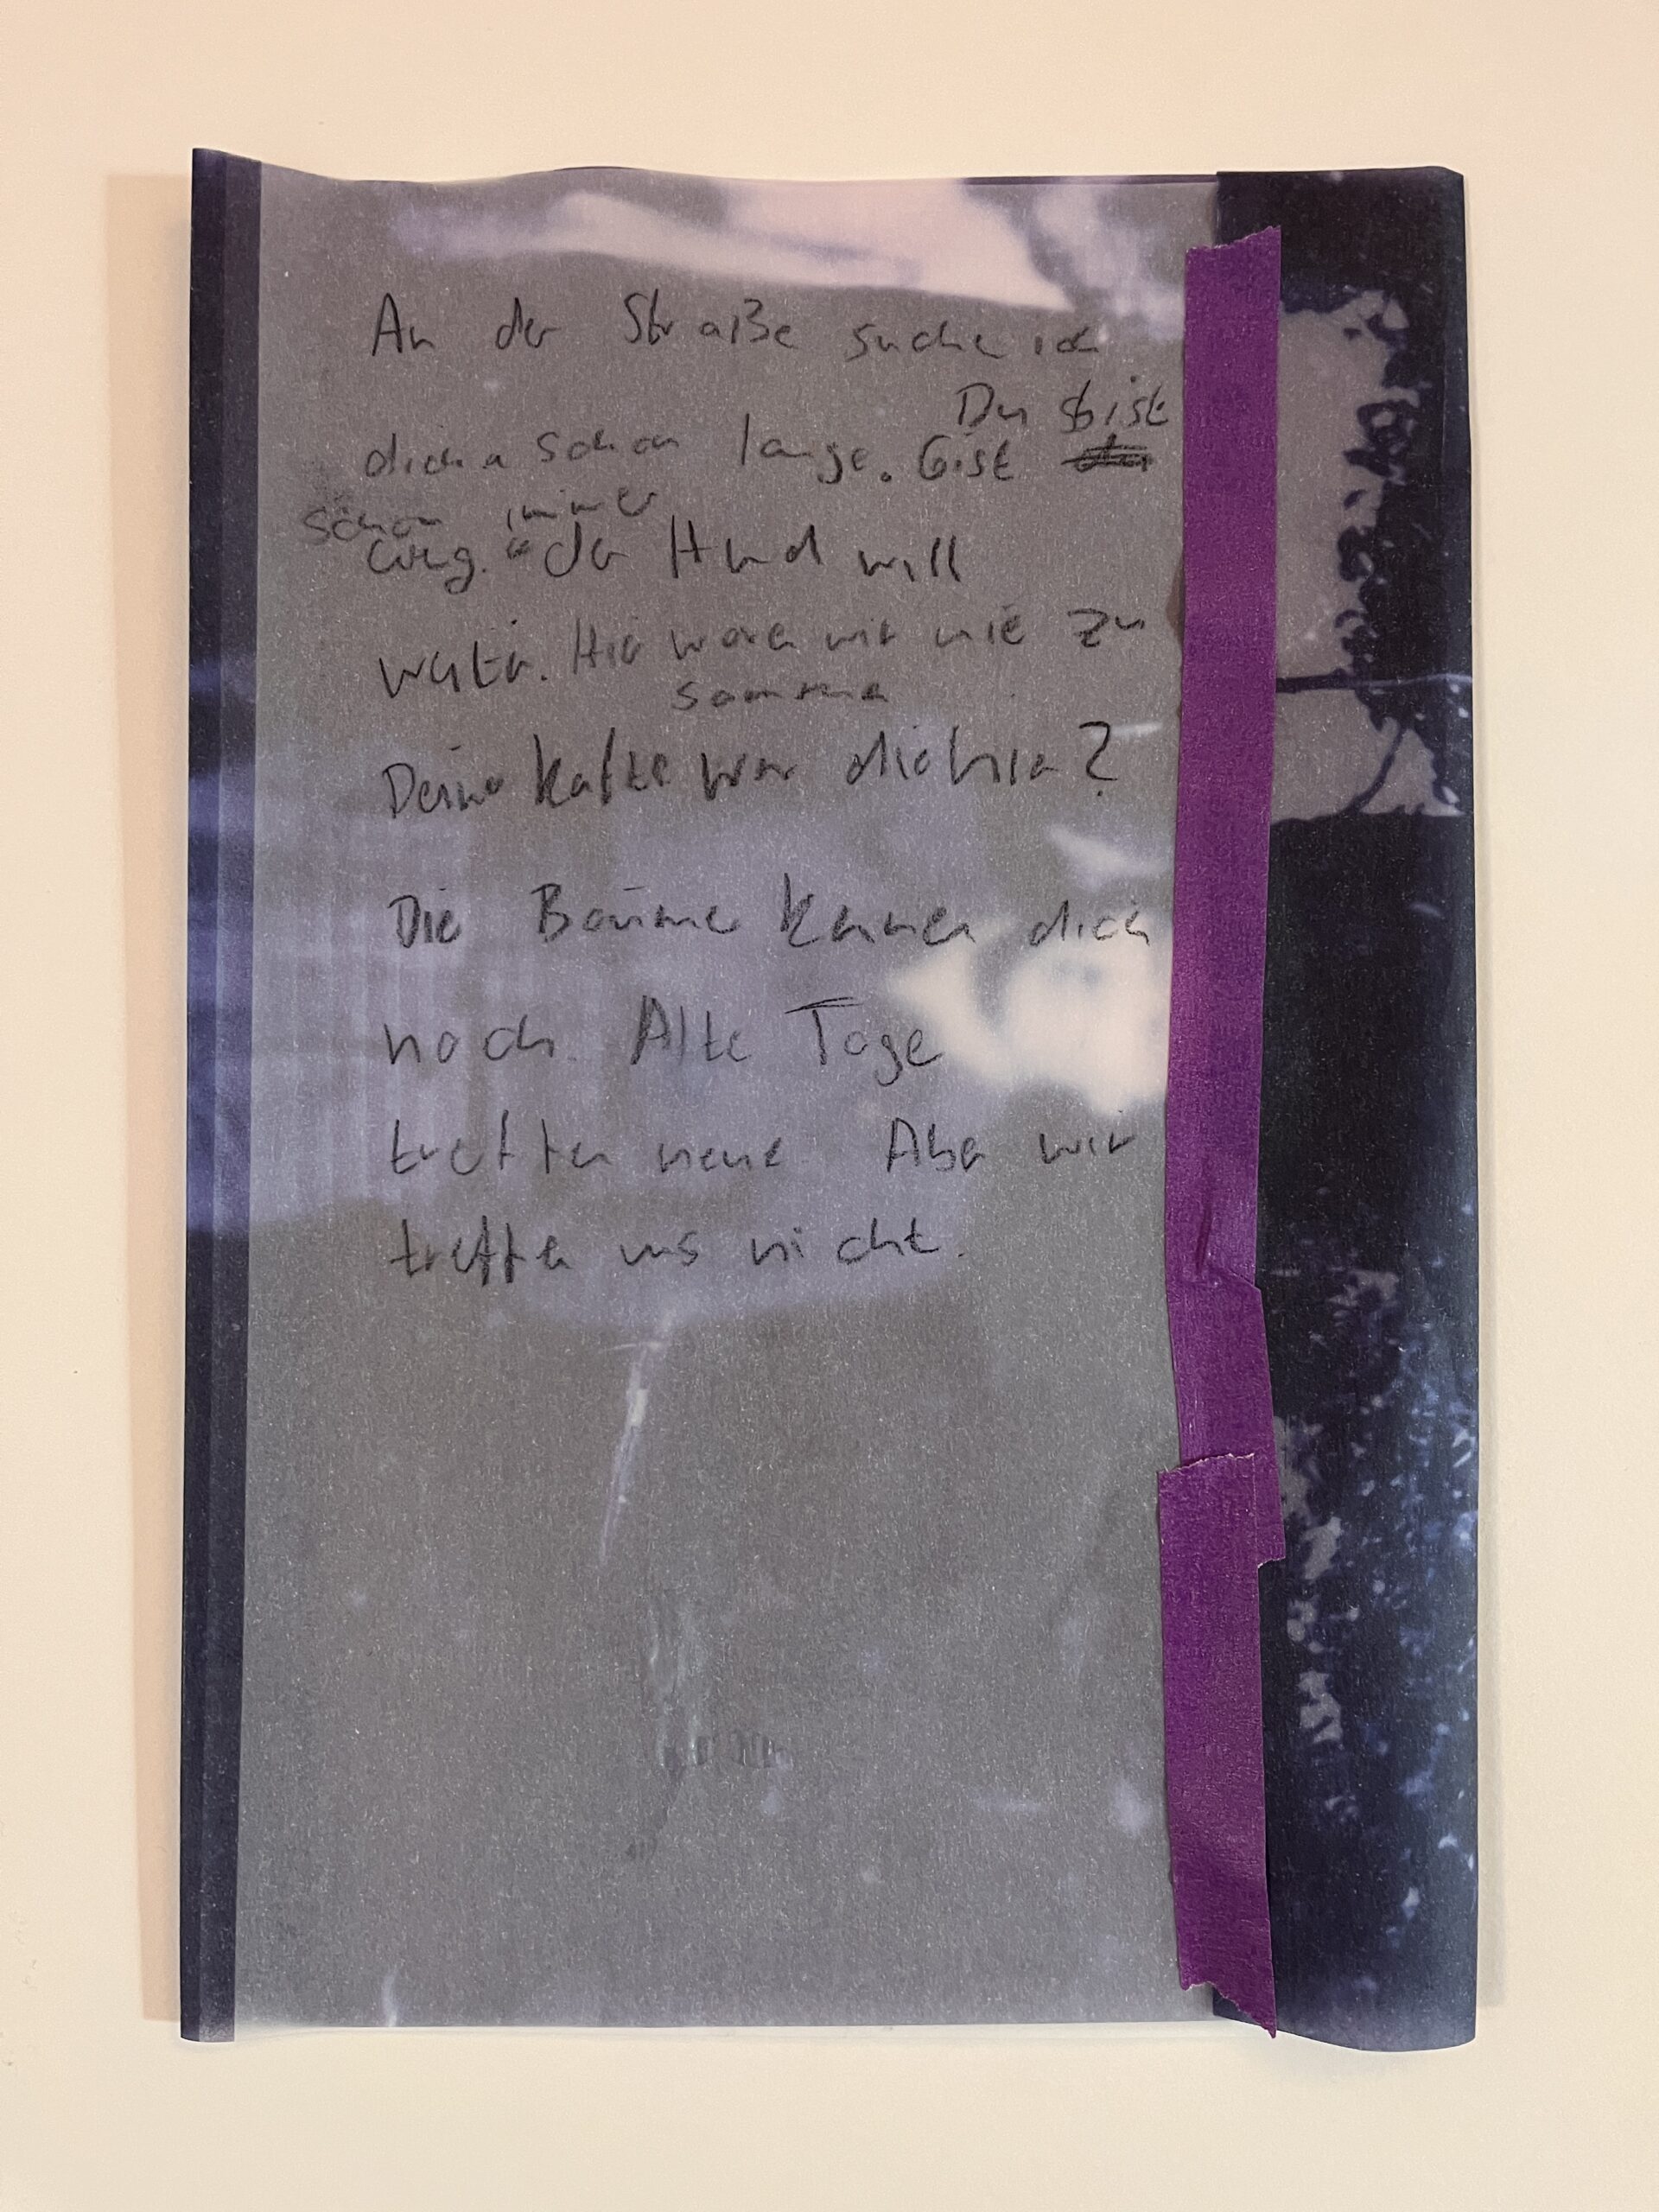 An der Straße suche ich
Du bist
dich schon lange. Bist
schon immer
weg. der Hund will
weiter. Hier waren wir nie zu
samme
Deine Katze war hier?
Die Bäume kennen dich
noch. Alte Tage
treffen neue. Aber wir
treffen uns nicht.